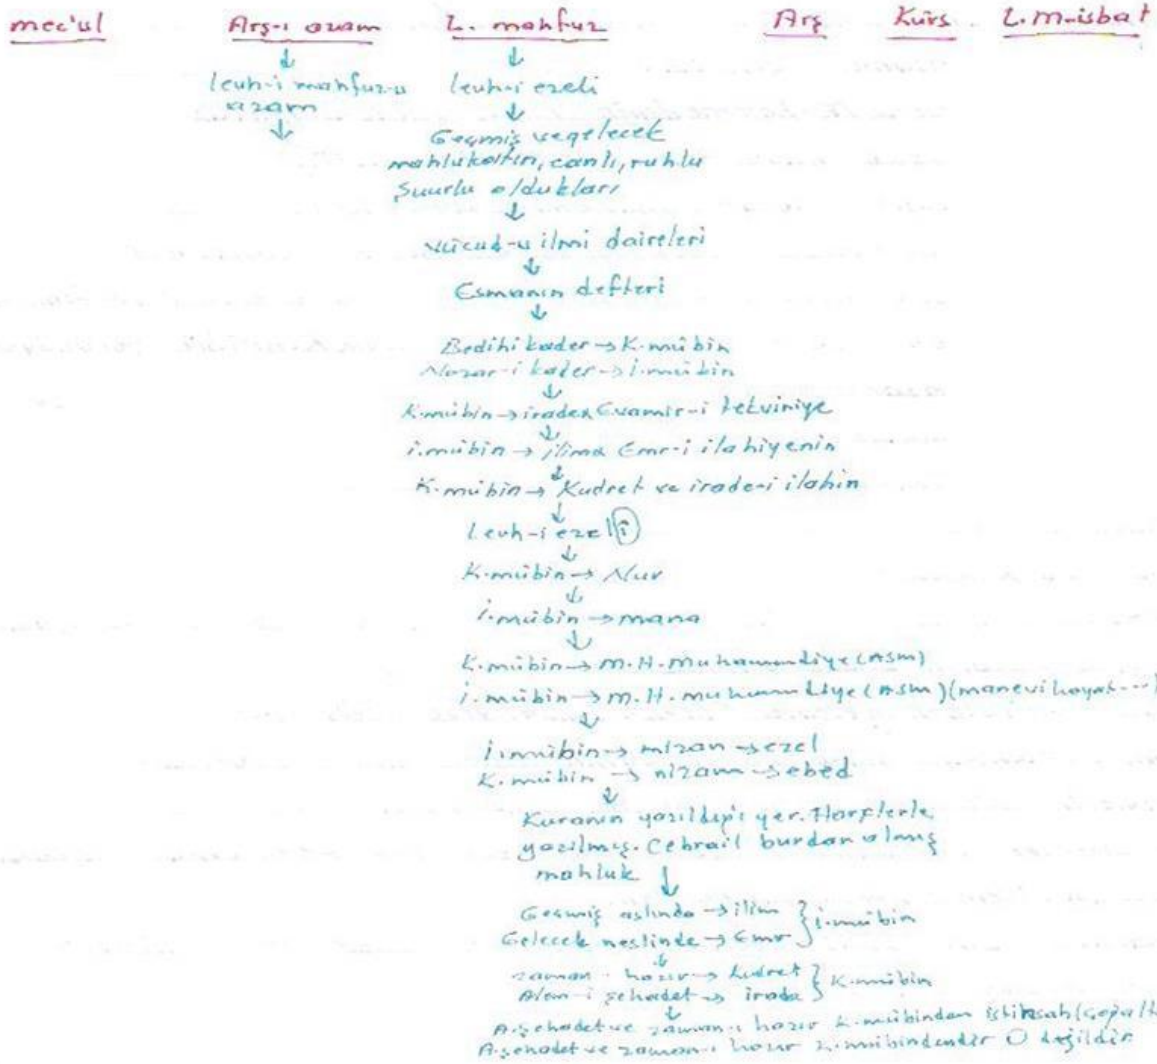 mec'ul Arş-ı azam L. mahfuz Arş Kürs L.M-isbat
↓ ↓
levh-i mahfuz-u levh-i ezeli
azam ↓
↓ Geçmiş ve gelecek
mahlukatın, canlı, ruhlu
Şuurlu oldukları
↓
vücud-u ilmi daireleri
↓
Esmanın defteri
↓
Bedihi kader → K.mübin
Nazar-i kader → İ.mübin
↓
K.mübin → iraden Evamir-i tekviniye
↓
i.mübin → ilima Emr-i ilahiyenin
↓
K.mübin → Kudret ve irade-i ilahin
↓
Levh-i ezel(i)
↓
K.mübin → Nur
↓
i.mübin → mana
↓
K.mübin → M.H.Muhammediye (ASM)
i.mübin → M.H.muhammediye (ASM) (manevi hayat...)
↓
İ.mübin → mizan → ezel
K.mübin → nizam → ebed
↓
Kuranın yazıldığı yer. Harflerle
yazılmış. Cebrail burdan almış
mahluk ↓
Geçmiş aslında → ilim } i.mübin
Gelecek neslinde → Emr
↓
zaman-ı hazır → kudret } K.mübin
Alem-i şehadet → irada
↓
A.şehadet ve zaman-ı hazır K.mübinden istinsah
A.şehadet ve zaman-ı hazır K.mübindendir O değildir